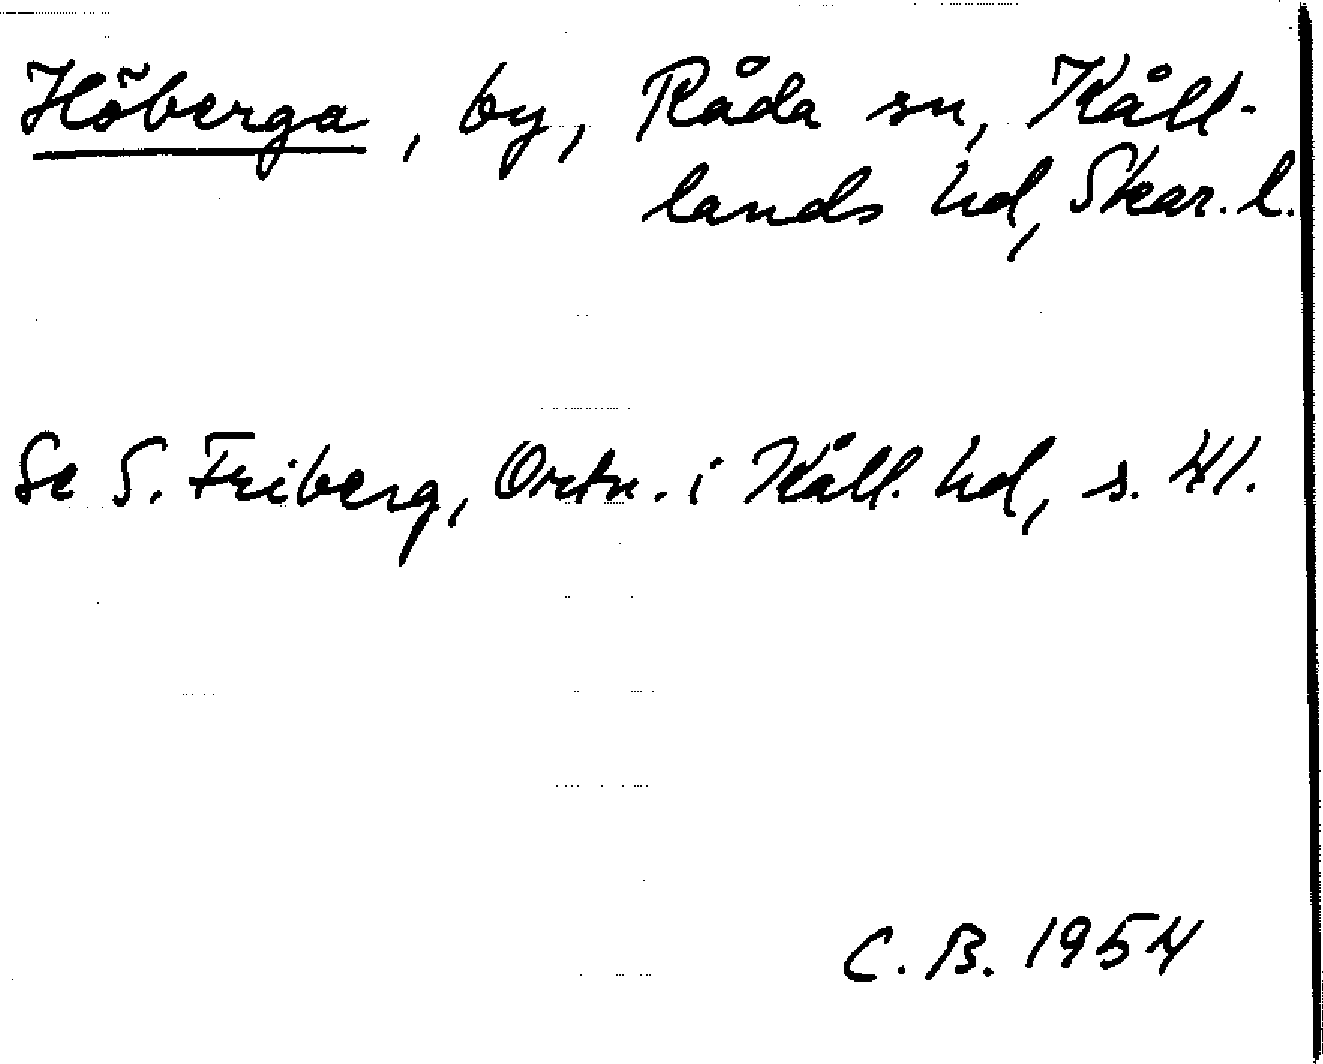 Höberga, by, Råda sn, Kåll-
lands hd, Skar. l.
Se S. Friberg, Ortn. i Kåll. hd, s. 41.
C. B. 1954